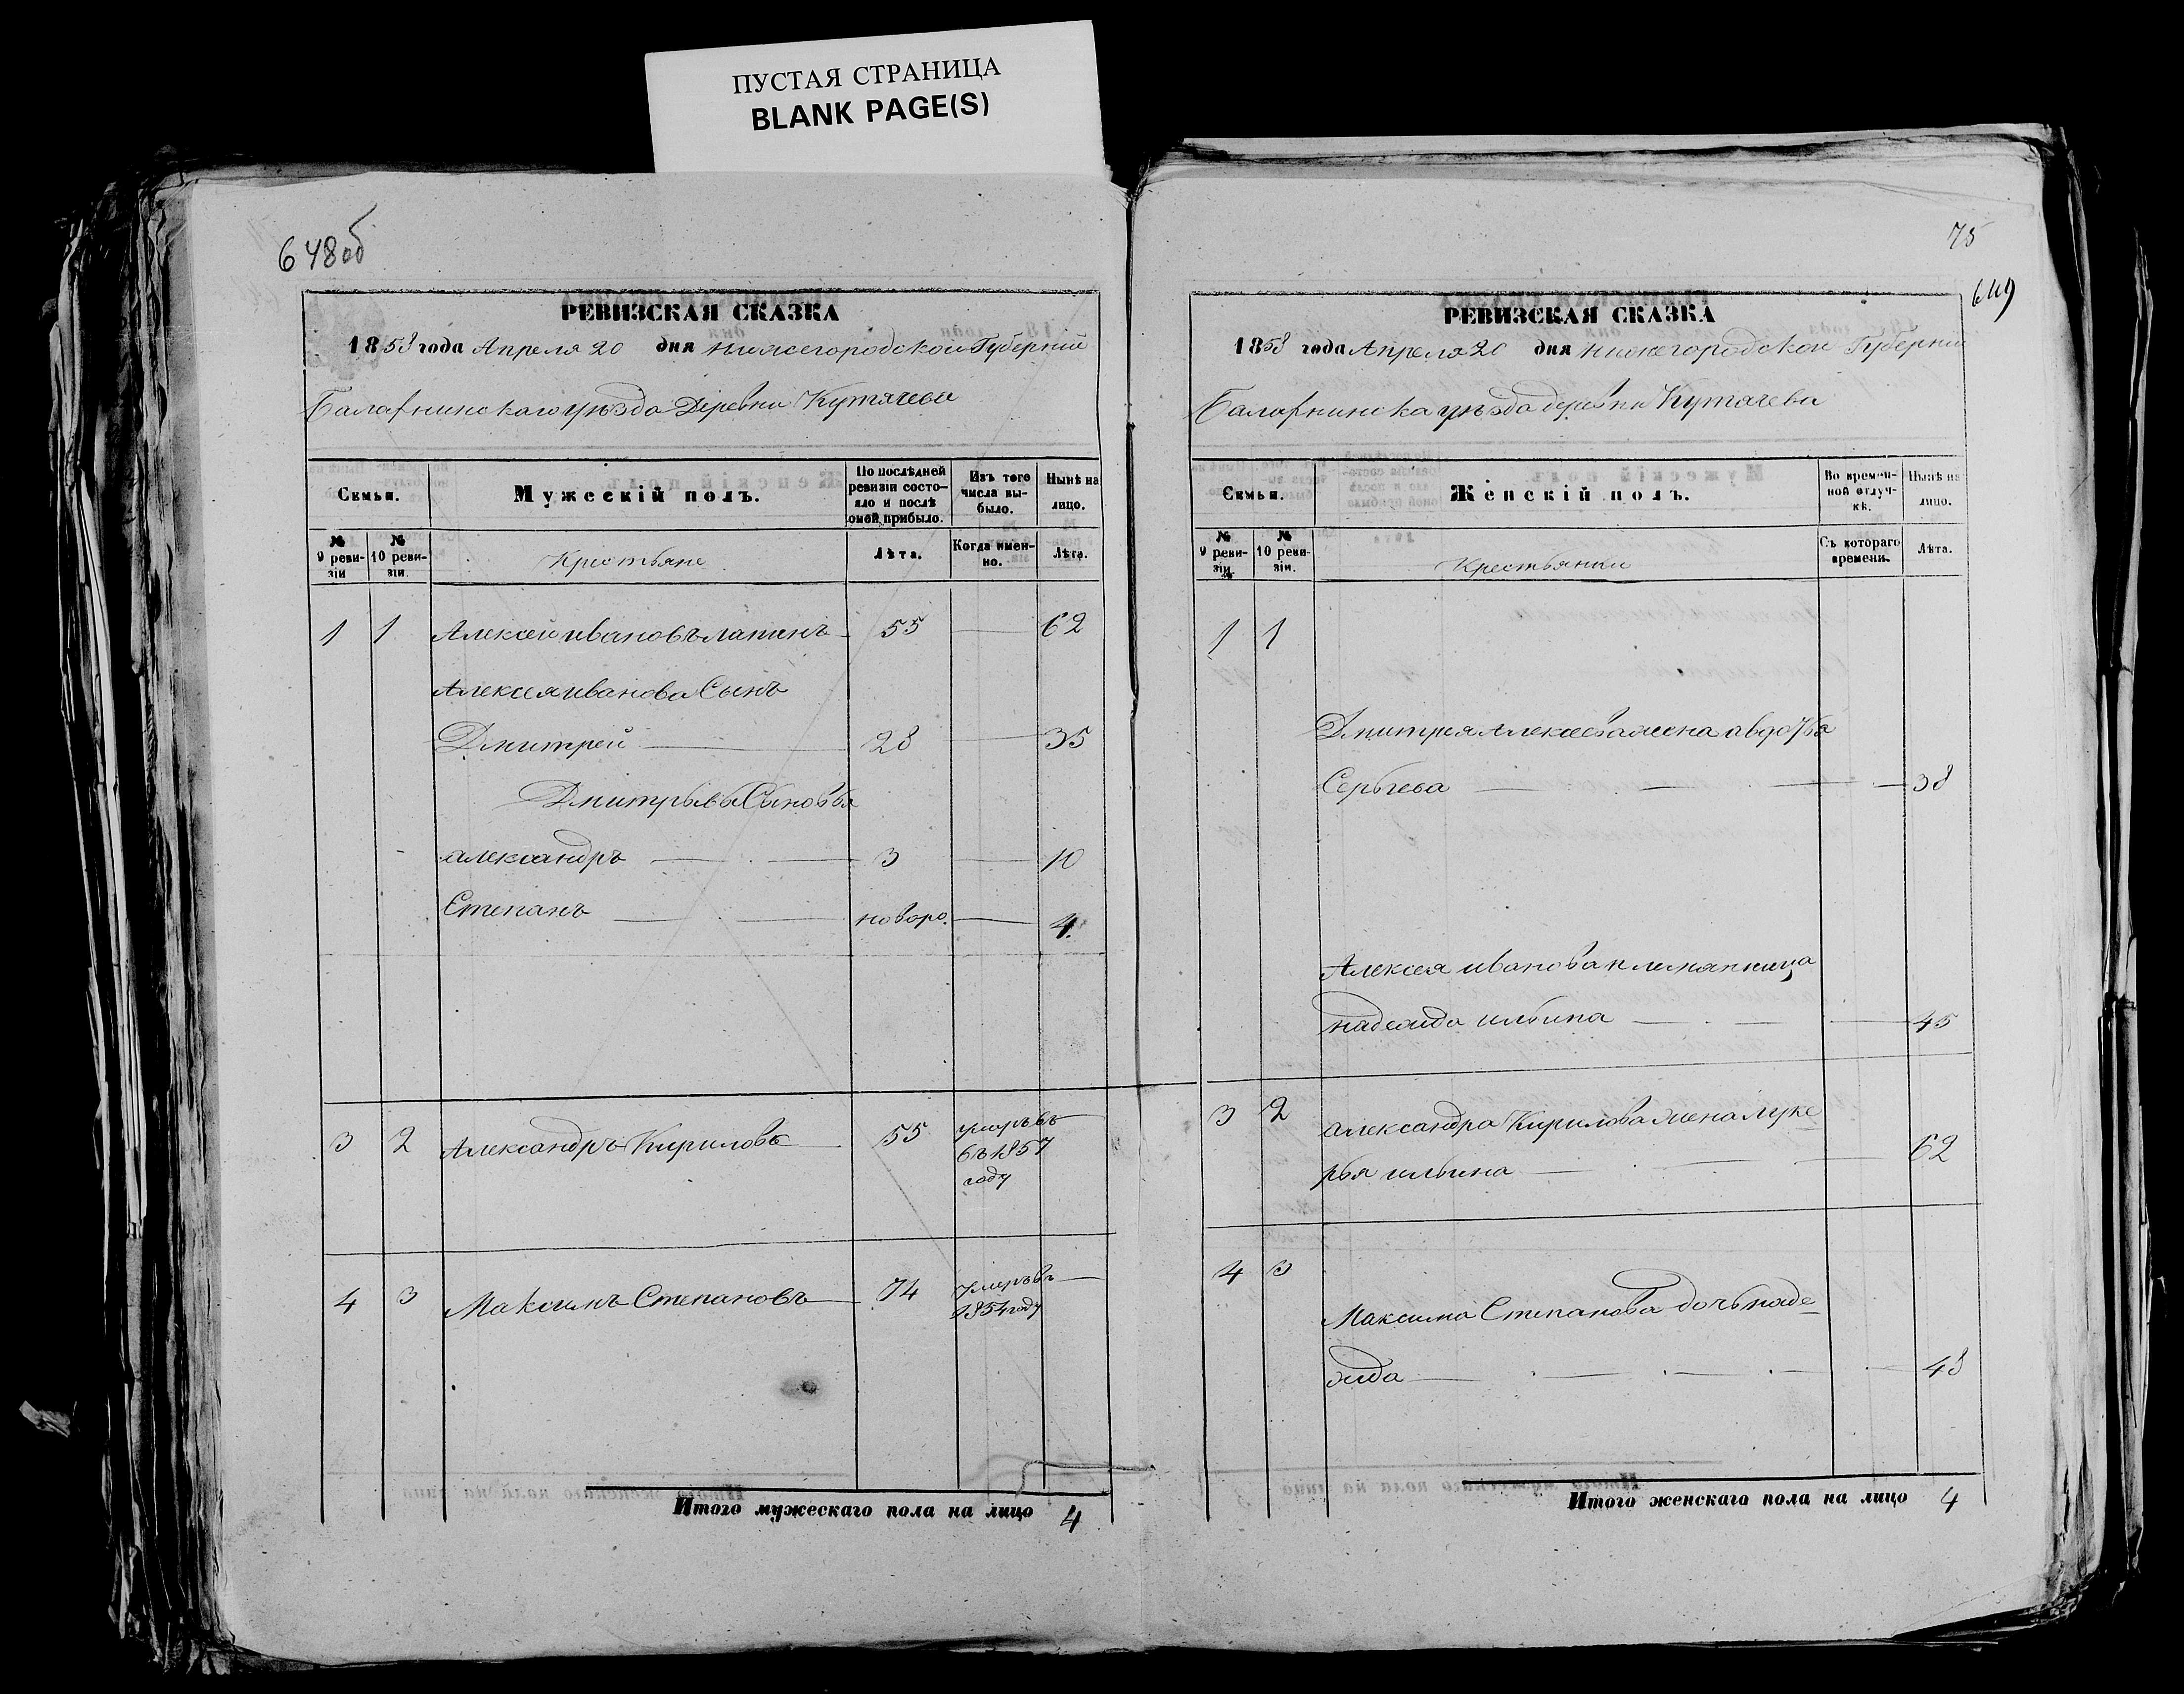 ПУСТАЯ СТРАНИЦА
BLANK PAGE(S)
648об
РЕВИЗСКАЯ СКАЗКА
1858 года Апреля 20 дня Нижегородской Губернии
Балахнинскаго уѣзда Деревни Кутячева
Семьи.
Мужескій полъ.
По послѣдней ревизіи состояло и послѣ оной прибыло.
Изъ того числа выбыло.
Нынѣ на лицо.
№ 9 ревизіи
№ 10 ревизіи.
Крестьяне
Лѣта.
Когда именно.
Лѣта.
1 1 Алексей ивановъ лапинъ 55 62
Алексея иванова Сынъ
Дмитрей 28 35
Дмитрьевы Сыновья
александръ 3 10
Степанъ новоро. 4
3 2 Александръ Кириловъ 55 умеръ въ
въ 1857
году
4 3 Максимъ Степановъ 74 умеръ въ
1854 году
Итого мужескаго пола на лицо 4
75
649
РЕВИЗСКАЯ СКАЗКА
1858 года Апреля 20 дня Нижегородской Губернии
Балахнинска уѣзда деревни Кутячева
Семьи.
Женскій полъ.
Во временной отлучкѣ.
Нынѣ на лицо.
№ 9 ревизіи.
№ 10 ревизіи.
Крестьянки
Съ котораго времени.
Лѣта.
1 1
Дмитрея Алексева жена авдотья
Серьгева 38
Алексея иванова племянница
надежда ильина 45
3 2 александра Кирилова жена луке
рья ильина 62
4 3
Максима Степанова дочь наде
жда 43
Итого женскаго пола на лицо 4